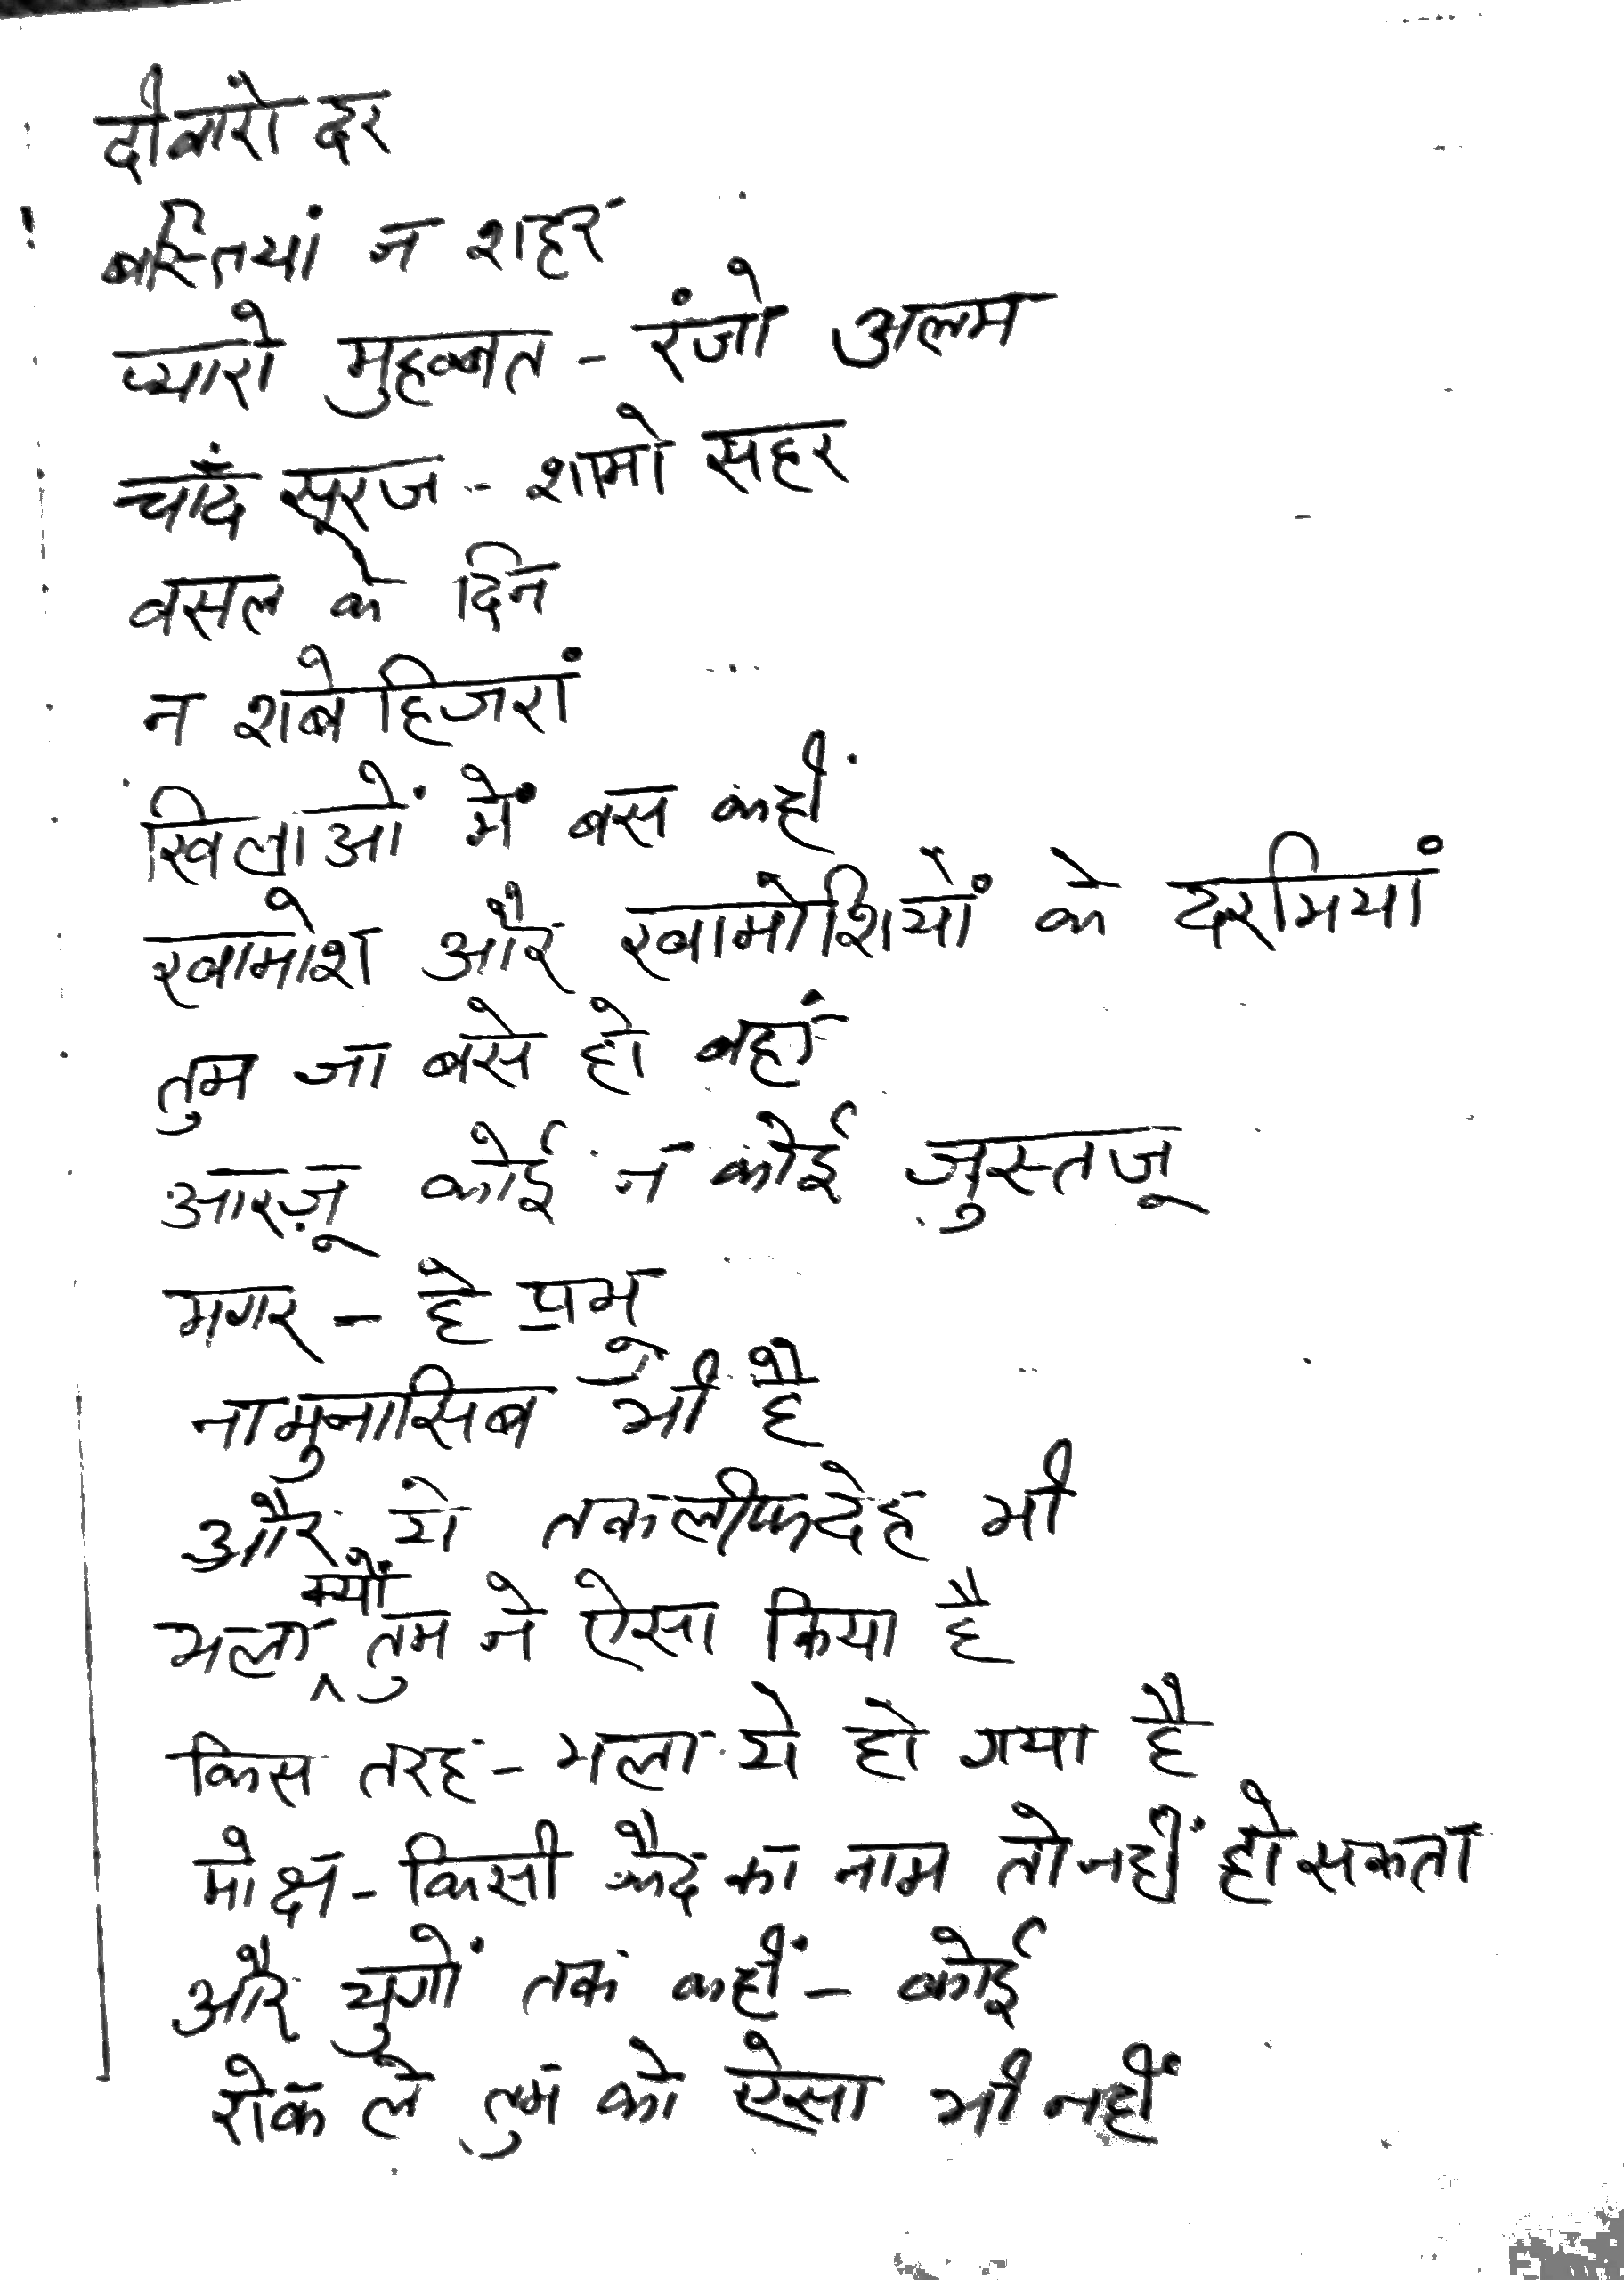 दीवारो दर
बस्तियां न शहर
प्यारो मुहब्बत - रंजो अलम
चाँद सूरज - शामो सहर
वसल के दिन
न शबे हिजरां
खिलाओं में बस कहीं
खामोश और खामोशियों के दरमियां
तुम जा बसे हो वहां
आरज़ू कोई न कोई जुस्तजू
मगर - हे प्रभू
नामुनासिब भी है
और ये तकलीफदेह भी
भला क्यों तुम ने ऐसा किया है
किस तरह - भला ये हो गया है
मोक्ष - किसी क़ैद का नाम तो नहीं हो सकता
और युगों तक कहीं - कोई
रोक ले तुम को ऐसा भी नहीं